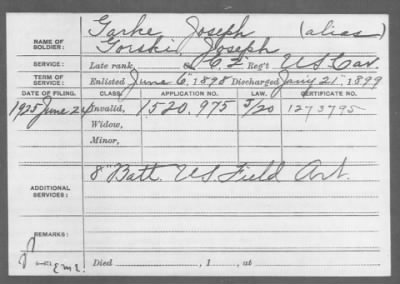 Garke, Joseph (alias)
NAME OF SOLDIER: Gorski, Joseph
SERVICE: Late rank, Reg't U.S. Cav.
TERM OF SERVICE: Enlisted June 6" 1898 Discharged Jany 21" 1899
DATE OF FILING. CLASS. APPLICATION NO. LAW. CERTIFICATE NO.
1925 June 24 Invalid, 1520.975 5/20 1273795
Widow,
Minor,
ADDITIONAL SERVICES: 8" Batt. U.S. Field Art.
REMARKS:
Died , 1 , at